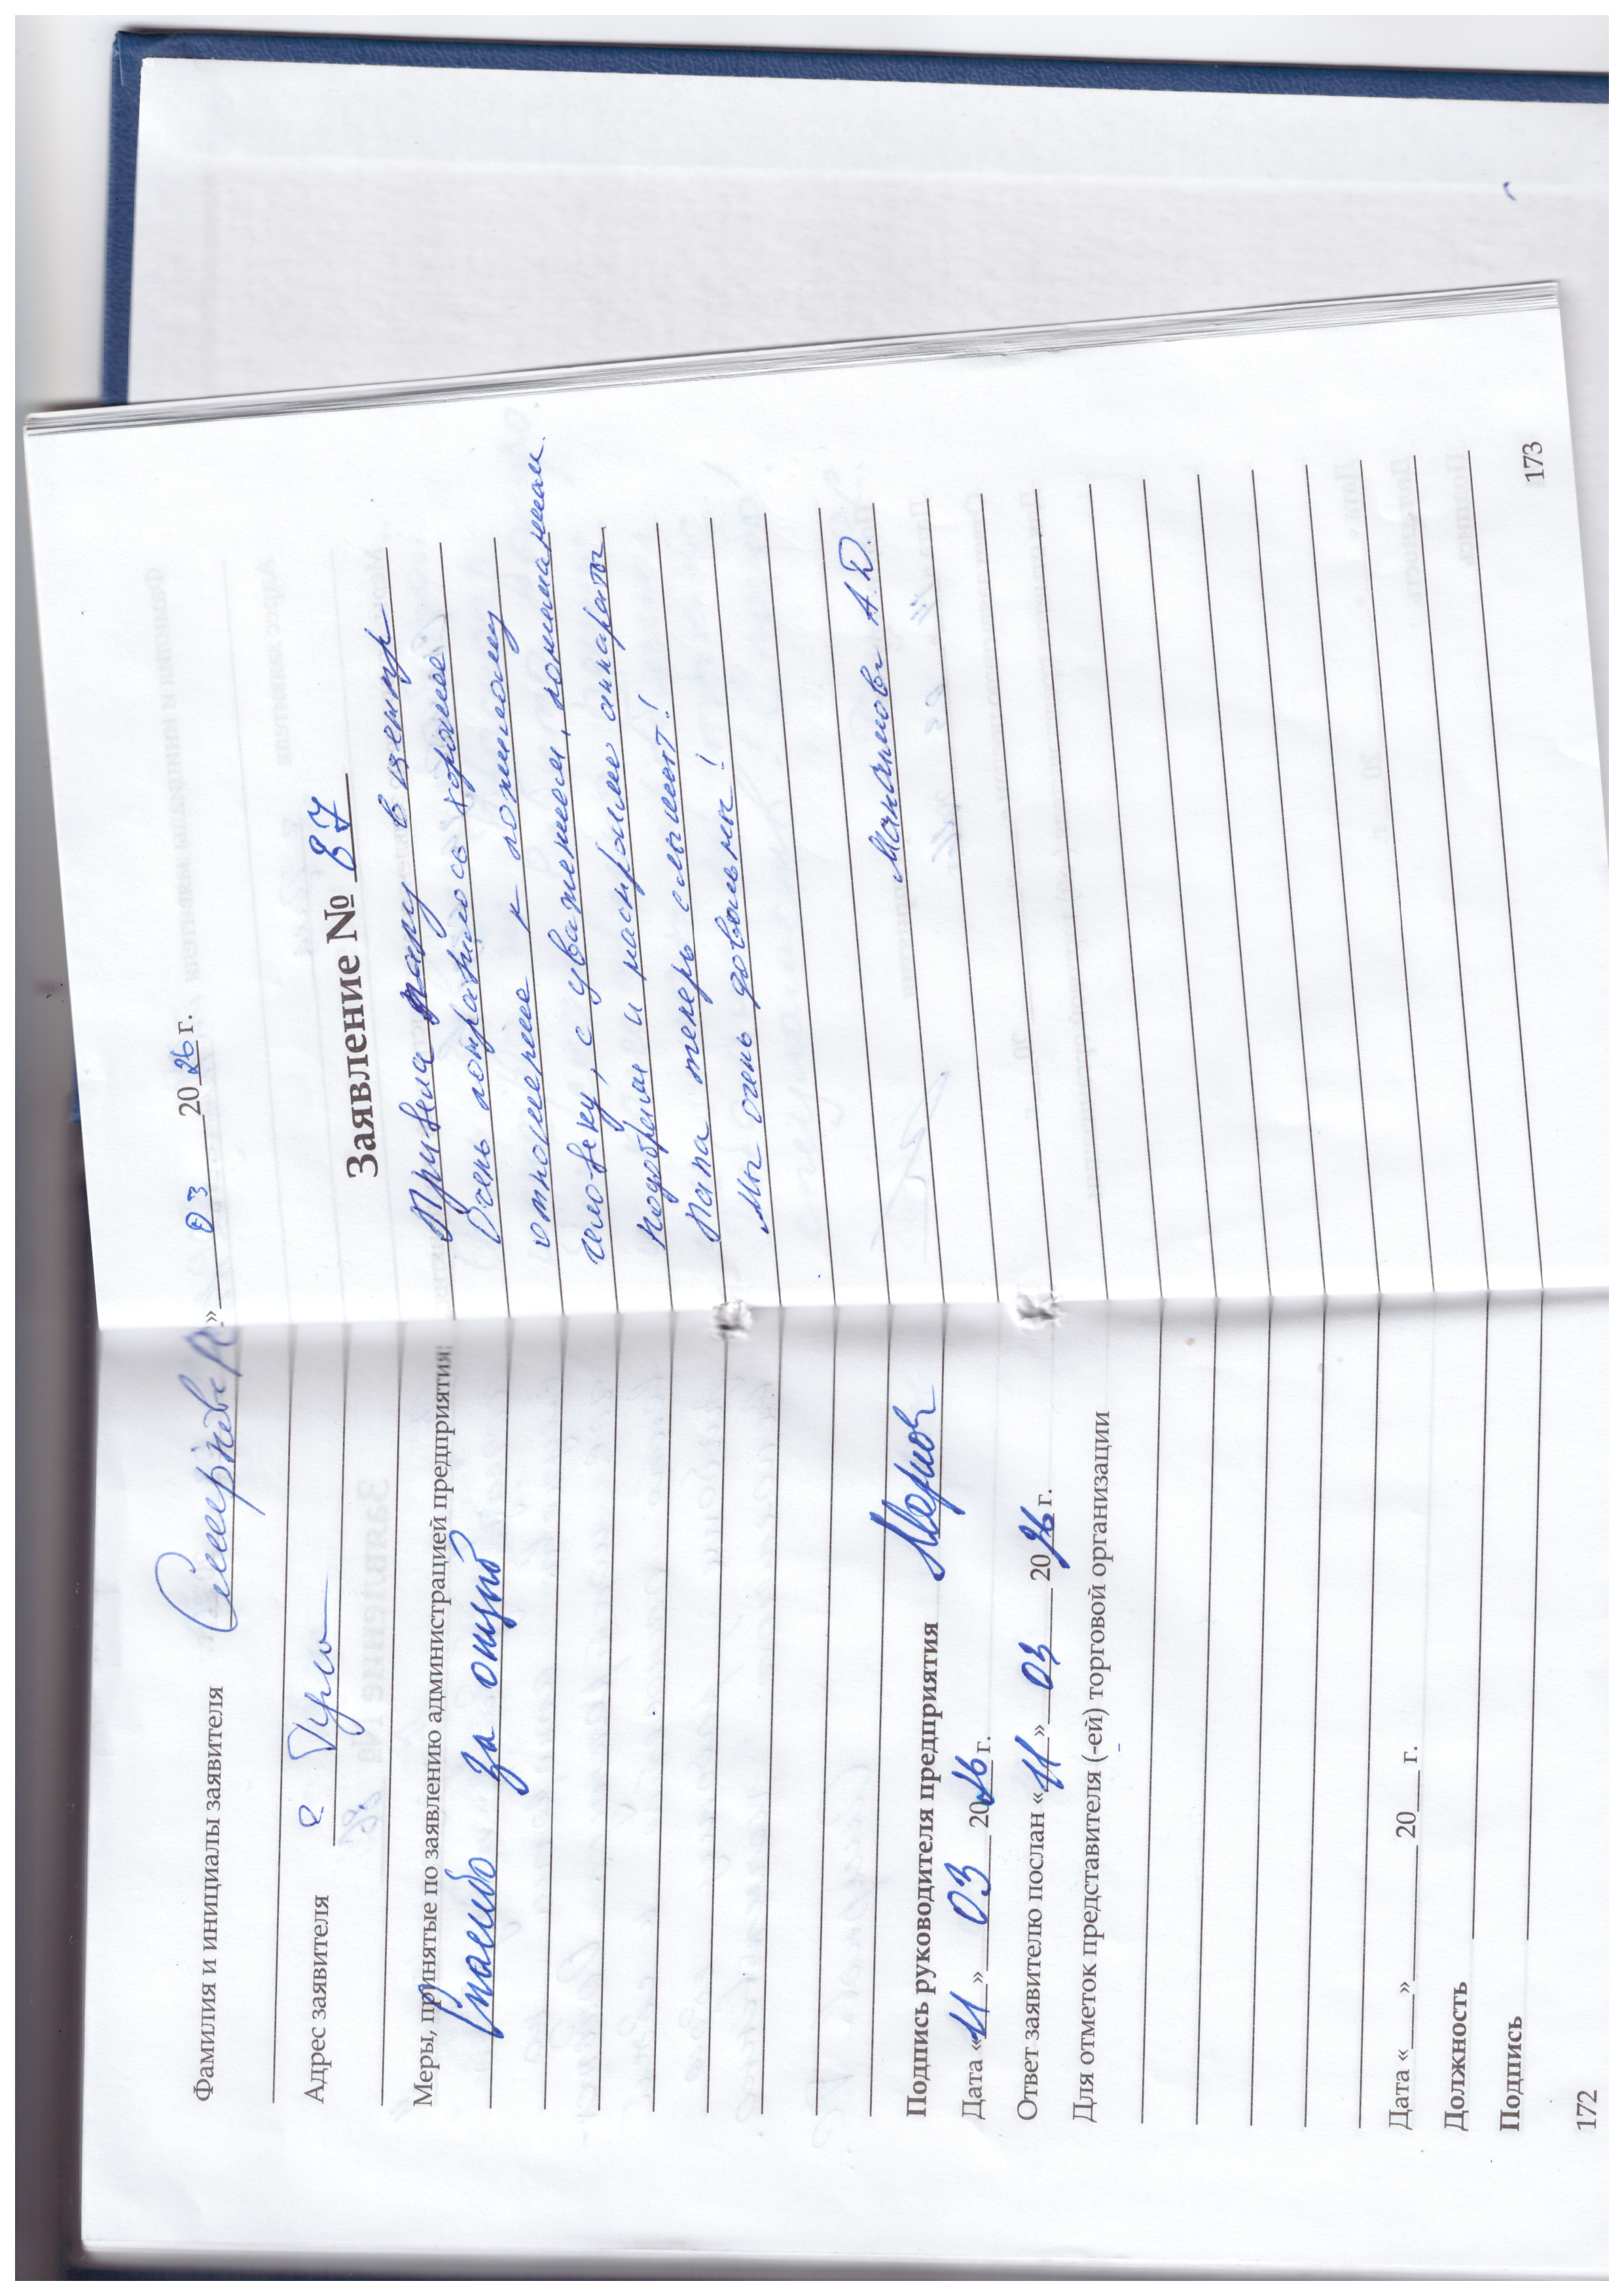 Фамилия и инициалы заявителя Смирнова
Адрес заявителя
Меры, принятые по заявлению администрацией предприятия:
Спасибо за отзыв
Подпись руководителя предприятия
Дата «11» 03 2026 г.
Ответ заявителю послан «11» 03 2026 г.
Для отметок представителя (-ей) торговой организации
Дата «____»________ 20___ г.
Должность
Подпись
172
» 03 2026 г.
Заявление № 87
Привела папу в центр
Очень понравилось хорошее
отношение к пожилому
человеку, с уважением, пониманием.
Подобрали и настроили аппараты
Папа теперь слышит!
Мы очень довольны!
А.Д.
173